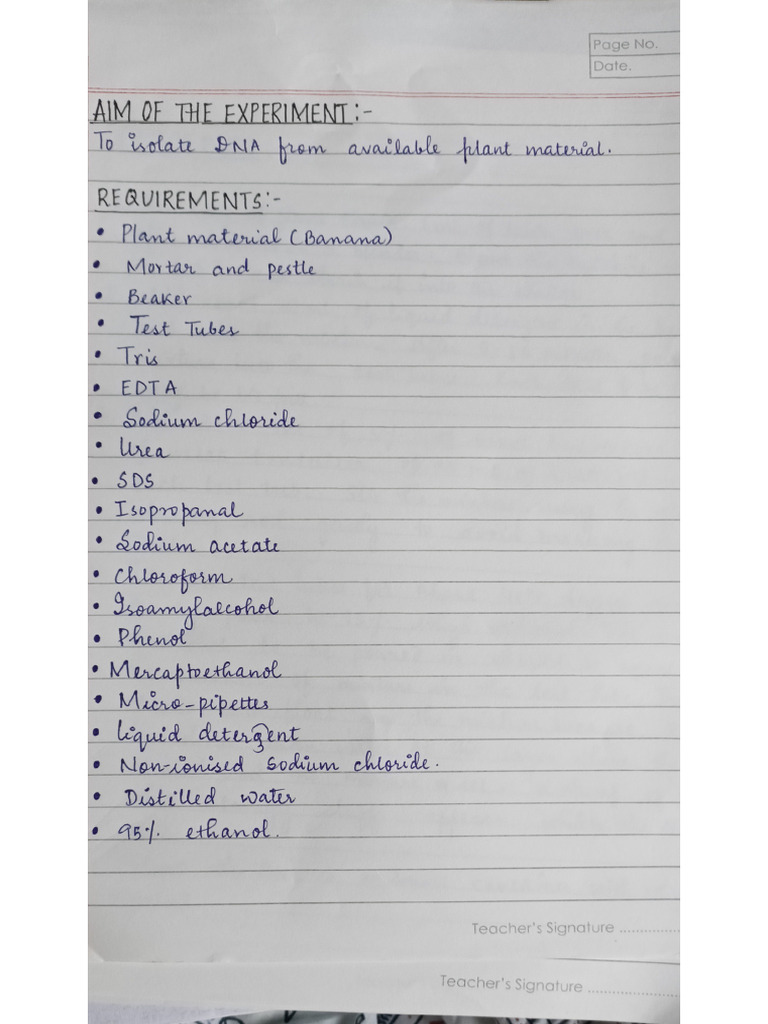 Page No.
Date.
AIM OF THE EXPERIMENT:-
To isolate DNA from available plant material.
REQUIREMENTS:-
• Plant material (Banana)
• Mortar and pestle
• Beaker
• Test Tubes
• Tris
• EDTA
• Sodium chloride
• Urea
• SDS
• Isopropanal
• Sodium acetate
• Chloroform
• Isoamylalcohol
• Phenol
• Mercaptoethanol
• Micro-pipettes
• Liquid detergent
• Non-ionised Sodium chloride.
• Distilled water
• 95% ethanol.
Teacher's Signature ...............
Teacher's Signature ...............